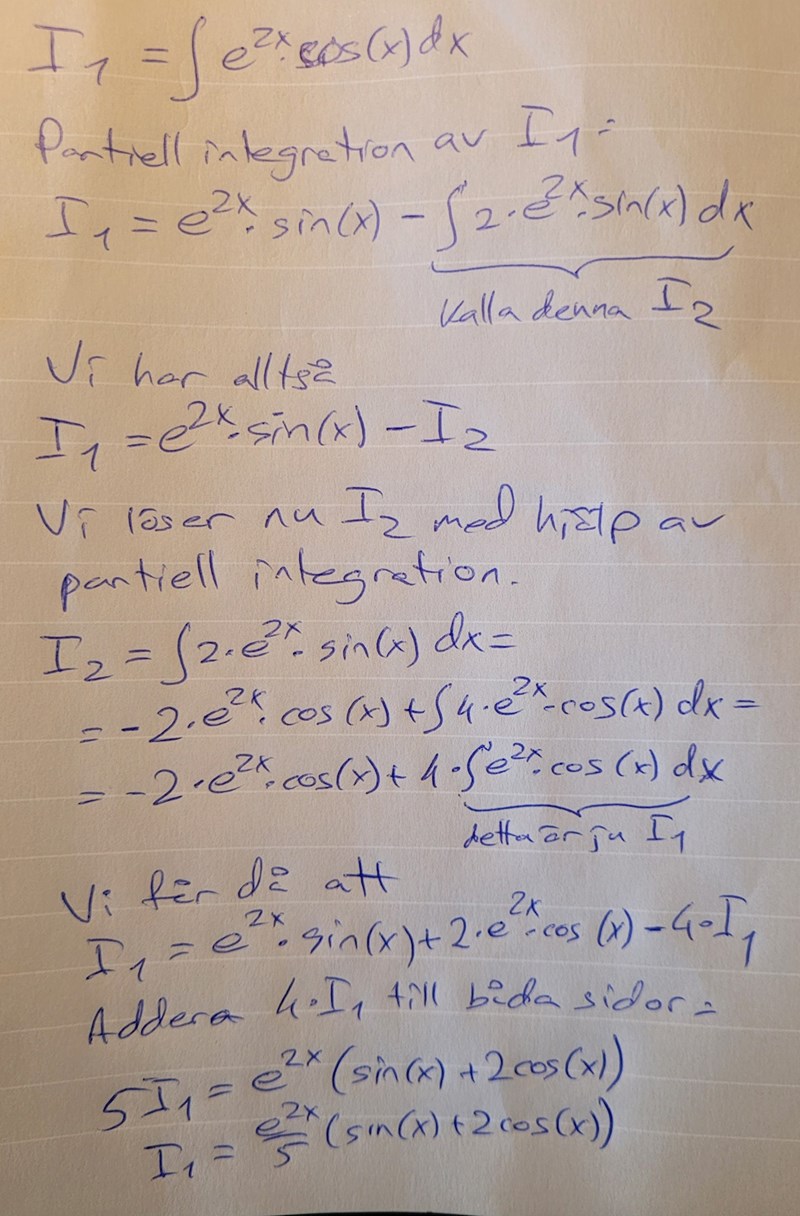 I₁ = ∫ e^{2x}·cos(x) dx
Partiell integration av I₁:
I₁ = e^{2x}·sin(x) − ∫ 2·e^{2x}·sin(x) dx
Kalla denna I₂
Vi har alltså
I₁ = e^{2x}·sin(x) − I₂
Vi löser nu I₂ med hjälp av
partiell integration.
I₂ = ∫ 2·e^{2x}·sin(x) dx =
= −2·e^{2x}·cos(x) + ∫ 4·e^{2x}·cos(x) dx =
= −2·e^{2x}·cos(x) + 4·∫ e^{2x}·cos(x) dx
detta är ju I₁
Vi får då att
I₁ = e^{2x}·sin(x) + 2·e^{2x}·cos(x) − 4·I₁
Addera 4·I₁ till båda sidor:
5I₁ = e^{2x}(sin(x) + 2cos(x))
I₁ = e^{2x}/5 (sin(x) + 2cos(x))